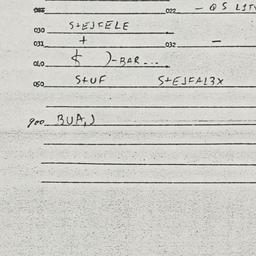 022 - Q S LIT
030 S+EJFELE
031 + 032 -
040 )-BAR...
050 S+UF S+EJFAL3X
900 BUA,J